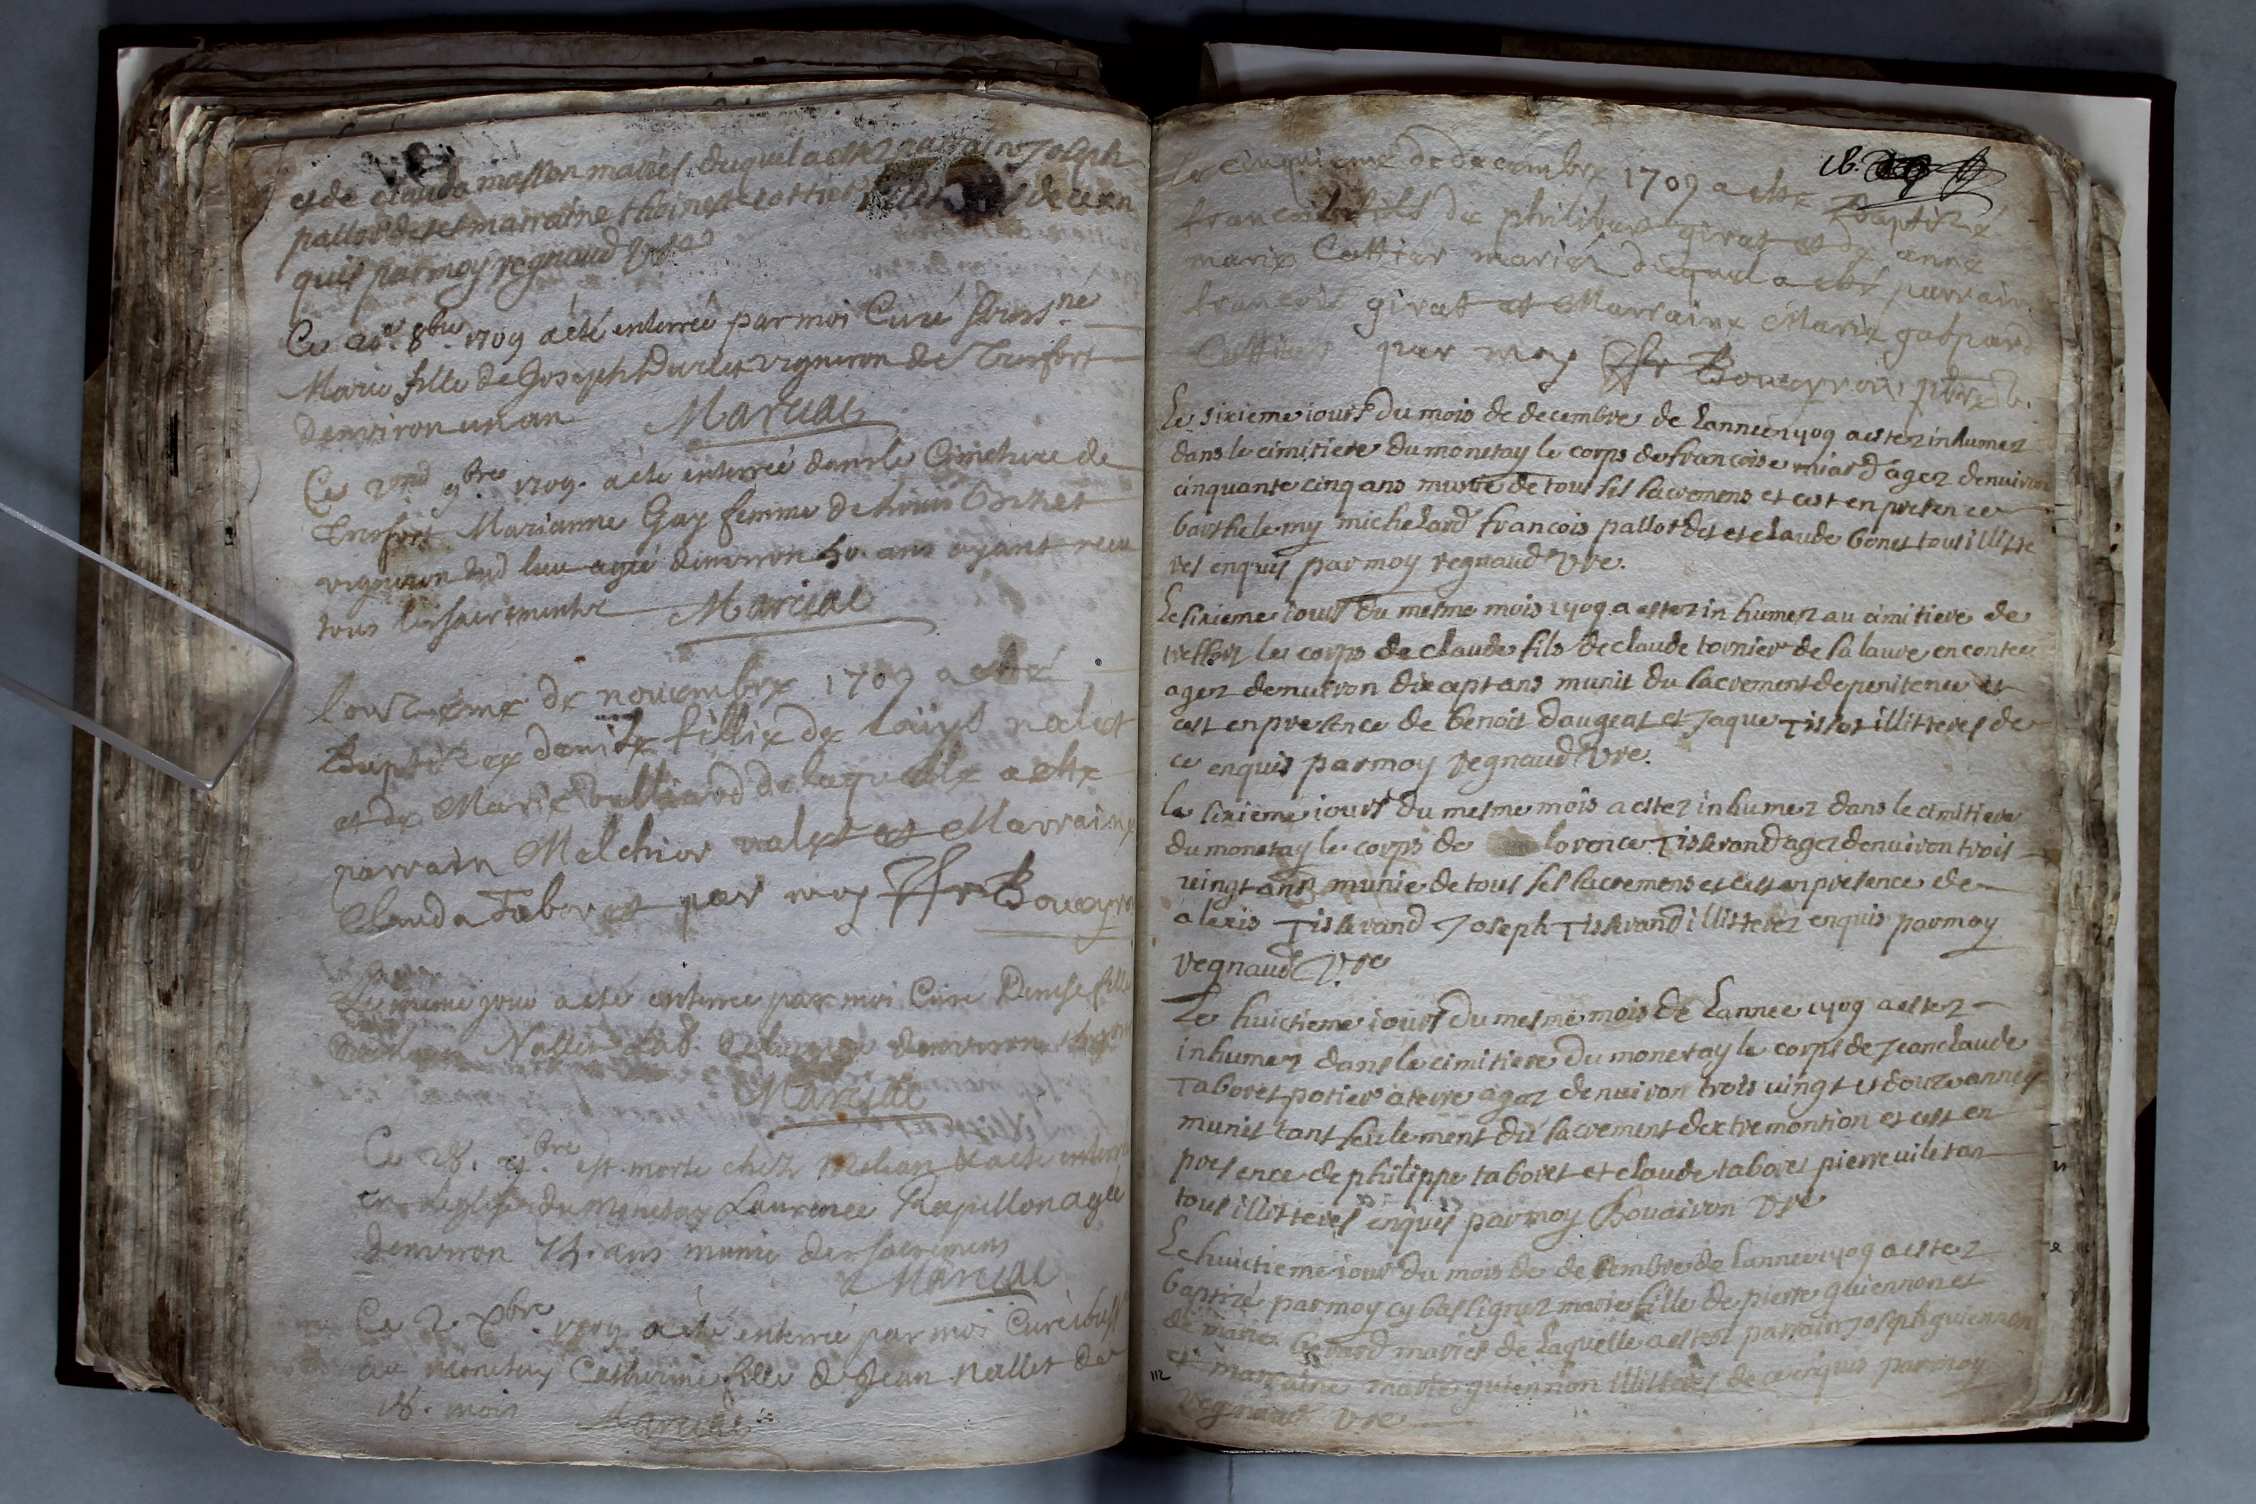 et de claude masson mariés duquel a estez parrain Joseph
pallordet et marraine thoinet cottier de ce en
quis par moy regnaud Vre
Ce 8bre 1709 a été enterrée par moi Curé souss.né
Marie fille de Joseph Durlet vigneron de Trefort
denviron un an Marciac
Ce 2nd 9bre 1709. a été enterrée dans le Cimetiere de
Trefort Marianne Gay femme de
vigneron dud lieu agée denviron 50. ans ayant recu
tous les sacrements Marciac
lonzieme de novembre 1709 a esté
Baptizee denise fillie de loüys nalet
et de Marie Vulliard de laquelle a este
parrain Melchior nalet et Marraine
Clauda Taboret par moy Bouayron
Le meme jour a ete enterree par moi Curé Denise fille
Nallet denviron
Marciac
Ce 28. 9bre est morte chez Melian & a ete enterrée
en leglise du Monetay Laurence Papillon agée
denviron 75. ans munie des sacremens
Marciac
Ce 2. Xbre 1709 a été enterrée par moi Curé
au monetay Catherine fille de Jean Nallet de
18. mois Marciac
18.
Le cinquieme de decembre 1709 a este Baptizé
francois fils de philibert girat et de anne
marie Cottier mariés duquel a esté parrain
francois girat et Marraine Marie gaspard
Cottier par moy Bouayron ptre V.
Le sixieme iour du mois de decembre de lannee 1709 a estez inhumez
dans le cimitiere du monetay le corps de francoise miard agez denuiron
cinquante cinq ans munie de tous ses sacremens et cest en presence
barthelemy michelard francois pallordet et claude bonet tous illitte
res enquis par moy regnaud Vre.
Le sixieme iour du mesme mois 1709 a estez inhumez au cimitiere de
treffort le corps de claude fils de claude tornier de la laure en contee
agez denuiron dix sept ans munit du sacrement de penitence et
cest en presence de benoit daugeat et Jaque Tissot illitteres de
ce enquis par moy regnaud Vre.
le sixieme iour du mesme mois a estez inhumez dans le cimitiere
du monetay le corps de lorence Tisserand agez denuiron trois
uingt ans munie de tous ses sacremens et cest en presence de
alexis Tisserand Joseph Tisserand illitterez enquis par moy
regnaud Vre
Le huictieme iour du mesme mois de lannee 1709 a estez
inhumez dans le cimitiere du monetay le corps de Jean claude
Taboret potier a terre agez denuiron trois uingt et douze annes
munit tant seulement du sacrement dextremontion et cest en
presence de philippe taboret et claude taboret pierre uiletan
tous illitteres enquis par moy Bouairon Vre
Le huictieme iour du mois de decembre de lannee 1709 a estez
baptizé par moy cy bas signez marie fille de pierre guiennon et
de marie berard mariés de laquelle a estez parrain Joseph guiennon
et marraine marie guiennon illitteres de ce enquis par moy
regnaud Vre
112